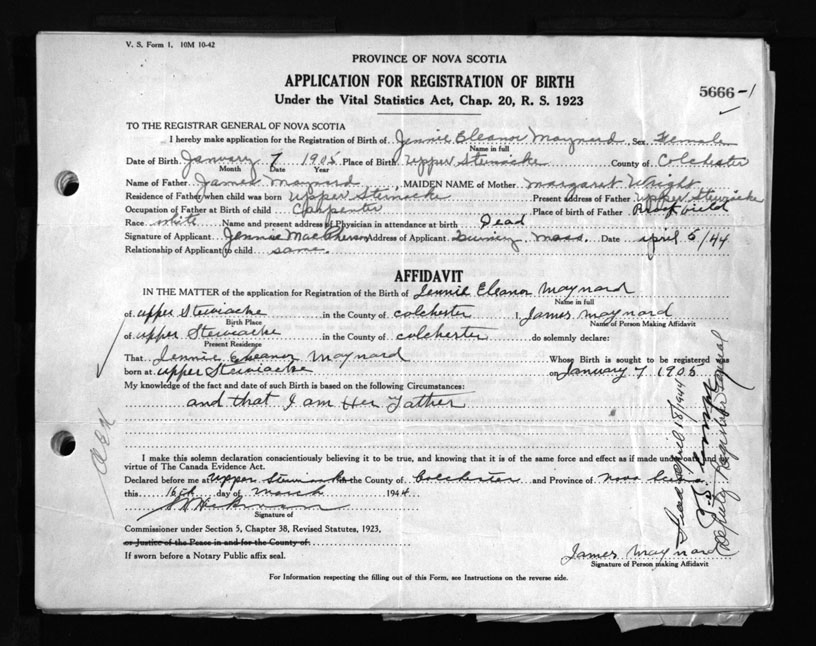 V. S. Form 1, 10M 10-42
PROVINCE OF NOVA SCOTIA
APPLICATION FOR REGISTRATION OF BIRTH
5666-1
Under the Vital Statistics Act, Chap. 20, R. S. 1923
TO THE REGISTRAR GENERAL OF NOVA SCOTIA
I hereby make application for the Registration of Birth of Jennie Eleanor Maynard Sex Female
Name in full
Date of Birth January 7 1905 Place of Birth Upper Stewiacke County of Colchester
Month Date Year
Name of Father James Maynard, MAIDEN NAME of Mother Margaret Wright
Residence of Father when child was born Upper Stewiacke Present address of Father Upper Stewiacke
Occupation of Father at Birth of child Carpenter Place of birth of Father
Race white Name and present address of Physician in attendance at birth Dead
Signature of Applicant Jennie MacPherson Address of Applicant Quincy Mass. Date april 5/44
Relationship of Applicant to child same.
AFFIDAVIT
IN THE MATTER of the application for Registration of the Birth of Jennie Eleanor Maynard
Name in full
of upper Stewiacke in the County of colchester I, James maynard
Birth Place Name of Person Making Affidavit
of upper Stewiacke in the County of colchester do solemnly declare:
Present Residence
That Jennie Eleanor Maynard Whose Birth is sought to be registered was
born at upper Stewiacke on January 7 1905
My knowledge of the fact and date of such Birth is based on the following Circumstances:
and that I am Her Father
I make this solemn declaration conscientiously believing it to be true, and knowing that it is of the same force and effect as if made under oath and by
virtue of The Canada Evidence Act.
Declared before me at Upper Stewiacke in the County of Colchester and Province of Nova Scotia
this 16th day of March 1944
Signature of
Commissioner under Section 5, Chapter 38, Revised Statutes, 1923,
or Justice of the Peace in and for the County of
If sworn before a Notary Public affix seal.
James Maynard
Signature of Person making Affidavit
For Information respecting the filling out of this Form, see Instructions on the reverse side.
April 18/1944
Deputy Registrar General